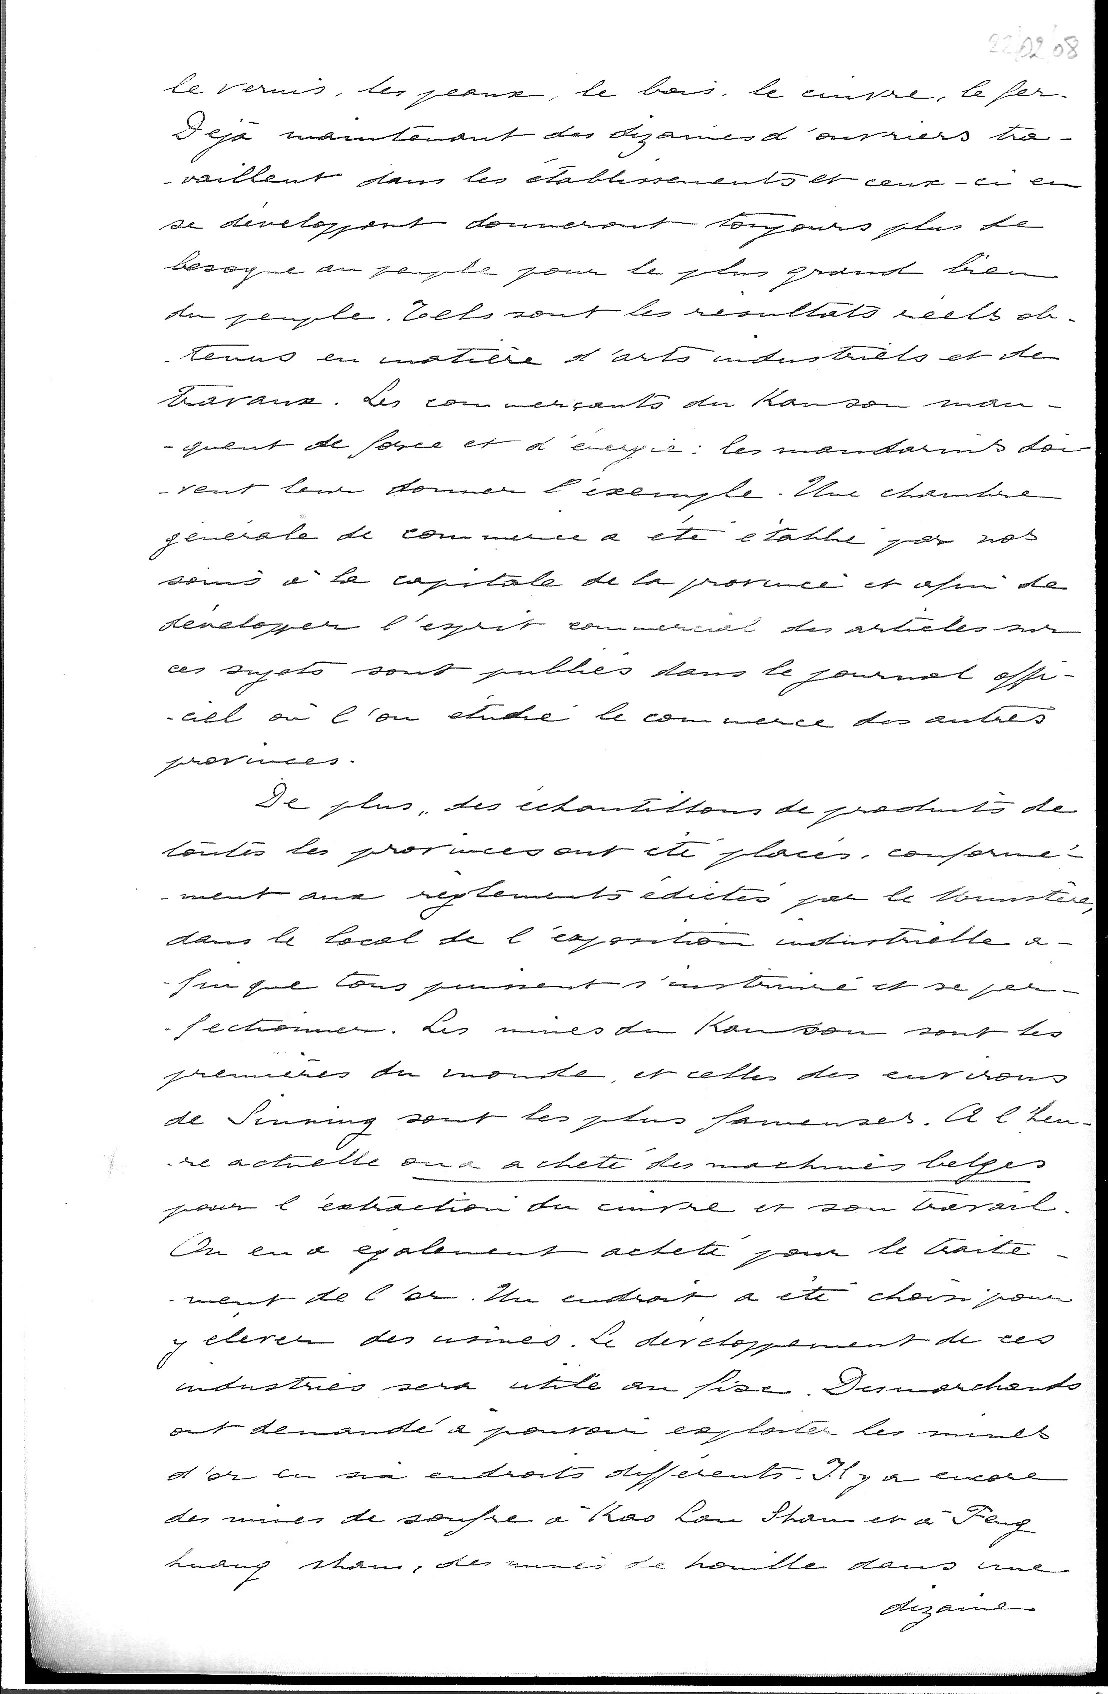 22/02/08
le vernis, les peaux, le bois, le cuivre, le fer.
Déjà maintenant des dizaines d'ouvriers tra-
-vaillent dans les établissements et ceux-ci en
se développant donneront toujours plus de
besogne au peuple pour le plus grand bien
du peuple. Tels sont les résultats réels ob-
-tenus en matière d'arts industriels et de
travaux. Les commerçants du Kansou man-
-quent de force et d'énergie: les mandarins doi-
-vent leur donner l'exemple. Une chambre
générale de commerce a été établie par nos
soins à la capitale de la province et afin de
développer l'esprit commercial des articles sur
ces sujets sont publiés dans le journal offi-
-ciel où l'on étudie le commerce des autres
provinces.
De plus, des échantillons de produits de
toutes les provinces ont été placés, conformé-
-ment aux règlements édictés par le Ministère,
dans le local de l'exposition industrielle a-
-fin que tous puissent s'instruire et se per-
-fectionner. Les mines du Kansou sont les
premières du monde, et celles des environs
de Sinning sont les plus fameuses. A l'heu-
-re actuelle on a acheté des machines belges
pour l'extraction du cuivre et son travail.
On en a également acheté pour le traite-
-ment de l'or. Un endroit a été choisi pour
y élever des usines. Le développement de ces
industries sera utile au fisc. Des marchands
ont demandé à pouvoir exploiter les mines
d'or en six endroits différents. Il y a encore
des mines de soufre à Kao Lan Shan et à Feng
huang shan, des mines de houille dans une
dizaine